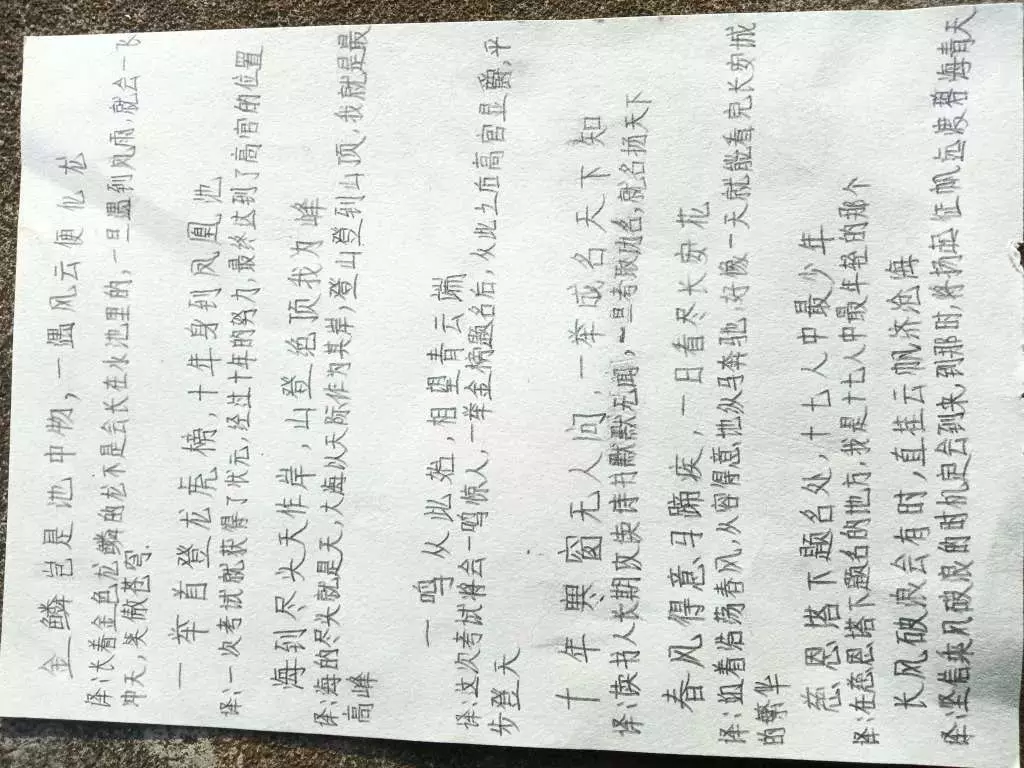 金鳞岂是池中物,一遇风云便化龙
译:长着金色龙鳞的龙不是会长在水池里的,一旦遇到风雨,就会一飞
冲天,笑傲苍穹.
一举首登龙虎榜,十年身到凤凰池
译:一次考试就获得了状元,经过十年的努力,最终达到了高官的位置
海到尽头天作岸,山登绝顶我为峰
译:海的尽头就是天,大海以天际作为其岸,登山登到山顶,我就是最
高峰
一鸣从此始,相望青云端
译:这次考试将会一鸣惊人,一举金榜题名后,从此之后高官显爵,平
步登天
十年寒窗无人问,一举成名天下知
译:读书人长期攻读诗书默默无闻,一旦考取功名,就名扬天下
春风得意马蹄疾,一日看尽长安花
译:迎着浩荡春风,从容得意地纵马奔驰,好像一天就能看完长安城
的繁华
慈恩塔下题名处,十七人中最少年
译:在慈恩塔下题名的地方,我是十七人中最年轻的那个
长风破浪会有时,直挂云帆济沧海
译:坚信乘风破浪的时机定会到来,到那时,将扬起征帆远渡碧海青天